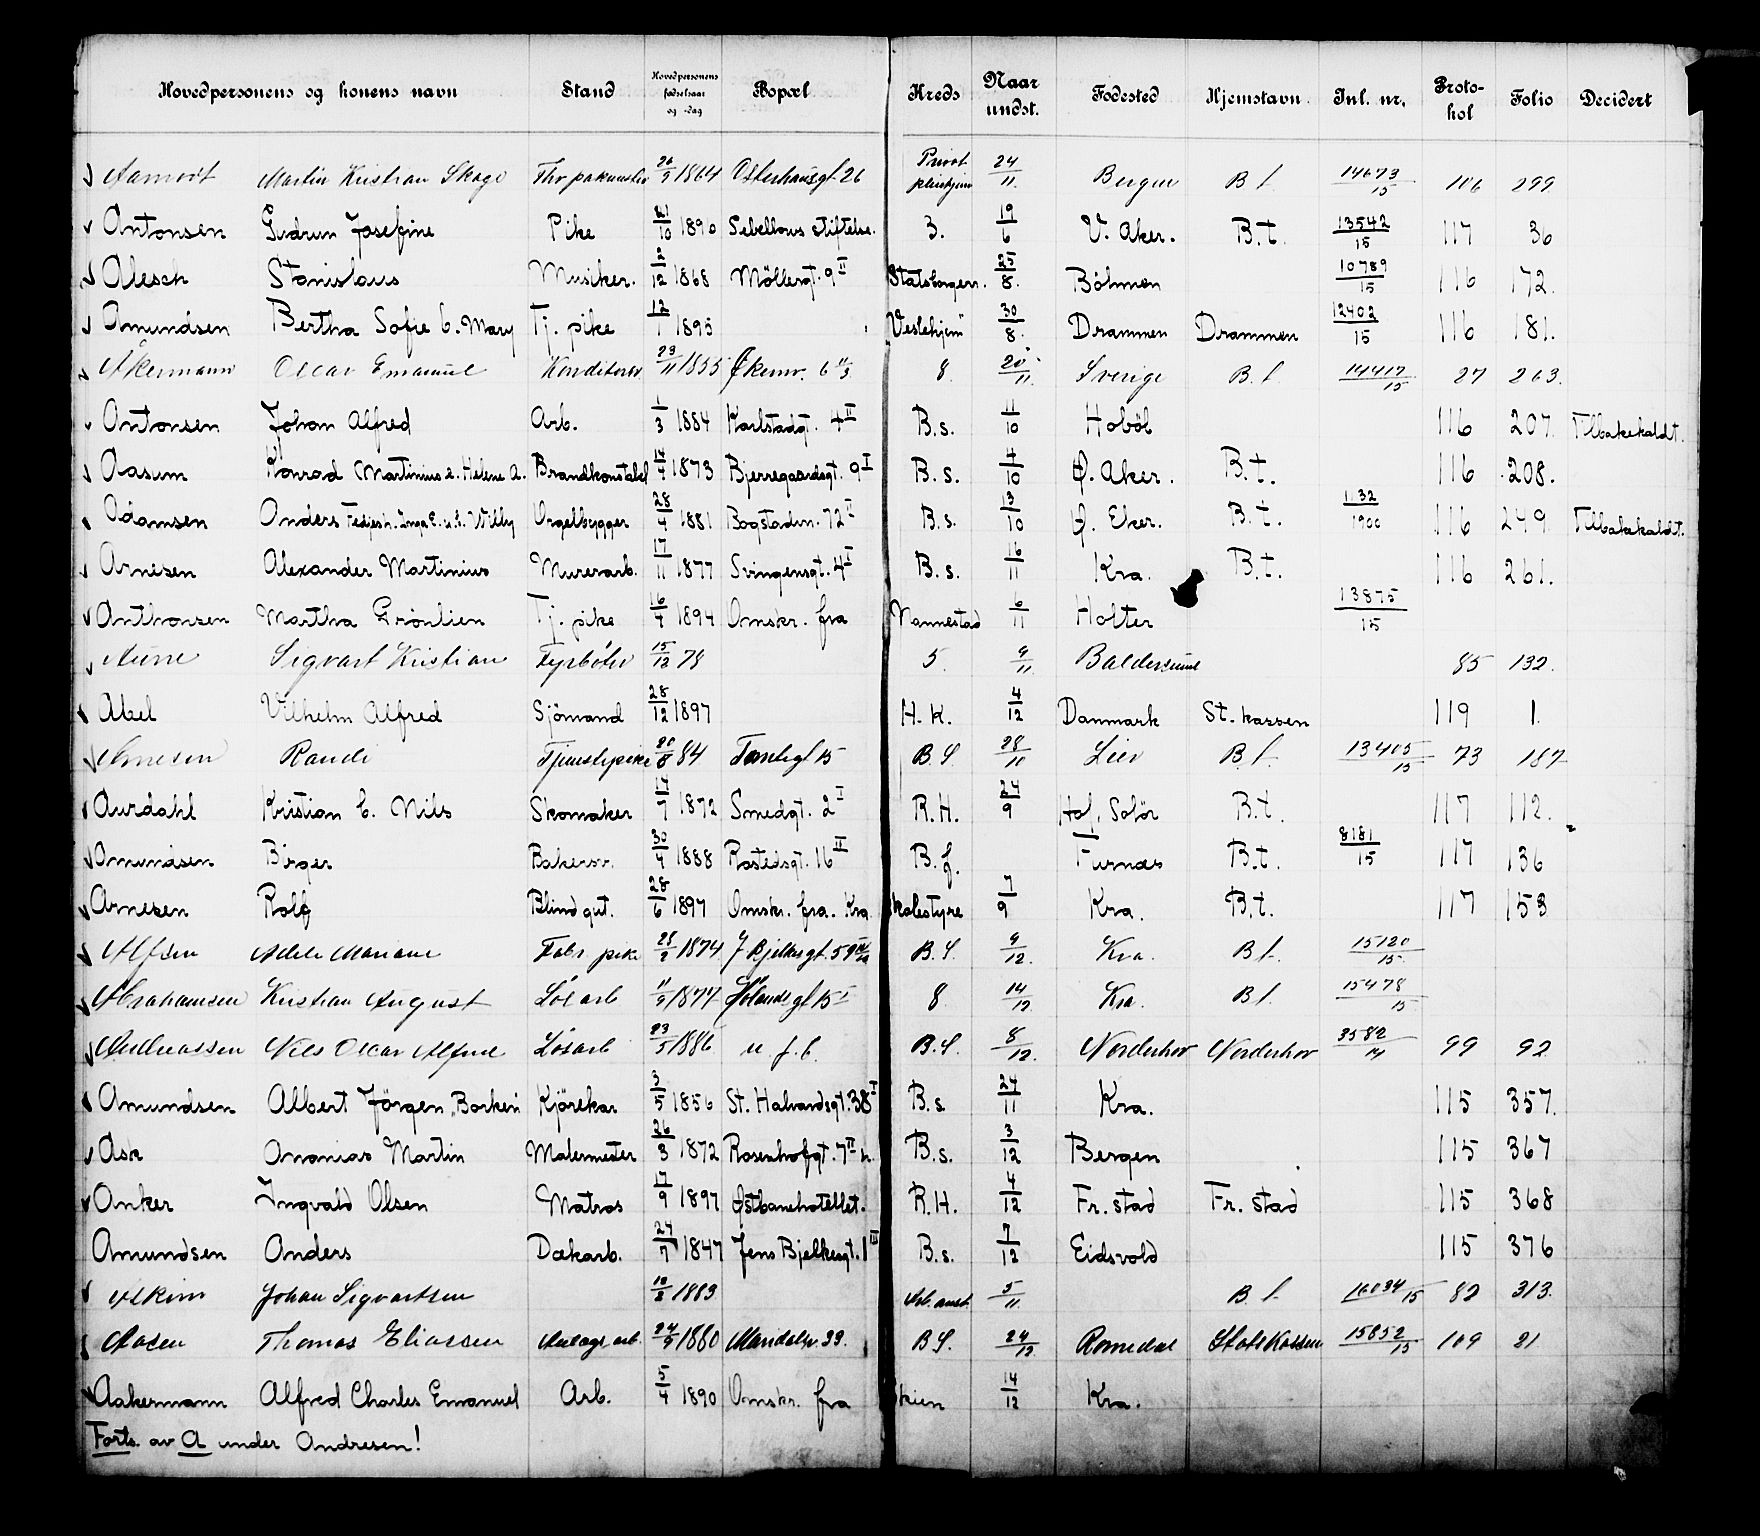 Hovedpersonens og konens navn Stand Hovedpersonens fødselsaar og -dag Bopæl Kreds Naar undst. Fødested Hjemstavn Inl. nr. Protokol Folio Decidert
Aamodt Martin Kristian 26/9 Osterhausgt. 26 Privat pleiehjem 24/11 Bergen B.t. 14673/15 106 299
Antonsen Gudrun Josefine Pike 21/10 1890 Sebbelows stiftelse. 3. 19/6 V. Aker. B.t. 13542/15 117 36
Alesch Stanislaus Musiker. 2/12 1868 Möllergt. 9 II Statsborgern. 25/8. Böhmen 10789/15 116 172.
Amundsen Bertha Sofie C. Mary Tj. pike 12/1 1895 Veslehjem 30/8. Drammen Drammen 12402/15 116 181.
Åkermann Oscar Emanuel Konditorsv. 23/11 1855 8 20/11. Sverige B.t. 14417/15 27 263.
Antonsen Johan Alfred Arb. 1/3 1884 Karlstadgt. 4 II B.s. 11/10 Hobøl 116 207. Tilbakekaldt.
Aasum Konrad Martinius e. Helene A. Brandkonstabel 14/4 1873 Bjerregaardsgt. 9 I B.s. 4/10 Ø. Aker. B.t. 116 208.
Adamsen Anders Orgelbygger 28/4 1881 Bogstadvn. 72 II B.s. 13/10 Ø. Eker. B.t. 1132/1900 116 249 Tilbakekaldt.
Arnesen Alexander Martinius Murerarb. 17/11 1877 Svingensgt. 4 I B.s. 16/11 Kra. B.t. 116 261.
Anthonsen Martha Grönlien Tj. pike 16/4 1894 Omskr. fra Nannestad 6/11 Holter 13875/15
Aune Sigvart Kristian Fyrbøter 15/12 78 5. 9/11 85 132.
Abel Vilhelm Alfred Sjömand 28/12 1897 H.K. 4/12 Danmark St. kassen 119 1.
Arnesen Randi Tjenestepike 20/8 84 Tomtegt 15 B.S. 28/10 Lier B.t. 13405/15 73 187
Aurdahl Kristian C. Nils Skomaker 17/7 1872 Smedgt. 2 I R.H. 24/9 Hof, Solör B.t. 117 112.
Amundsen Birger Bakersv. 30/4 1888 Rostedsgt. 16 II B.f. Furnes B.t. 8181/15 117 136
Arnesen Rolf Blind gut. 28/6 1897 Omskr. fra. Kra. skolestyre 7/9 Kra. B.t. 117 153
Alfsen Adele Mariane Fabr pike 28/2 1874 J Bjelkesgt. 59 B.S. 9/12. Kra. B.t. 15120/15
Abrahamsen Kristian August Løsarb 11/9 1877 8 14/12 Kra. B.t. 15478/15
Andreassen Nils Oscar Alfred Løsarb 23/5 1886 u. f. b. B.S. 8/12. Norderhov Norderhov 3582/14 99 92
Amundsen Albert Jörgen "Borken" Kjörekar 3/5 1856 St. Halvardsgt. 38 I B.s. 24/11 Kra. 115 357.
Ask Ananias Martin Malermester 26/3 1872 Rosenhofgt. 7 II B.s. 3/12 Bergen 115 367
Anker Ingvald Olsen Matros 17/9 1897 Østbanehotellet. R.H. 4/12 Fr. stad Fr. stad 115 368
Amundsen Anders Dækarb. 24/7 1847 Jens Bjelkesgt. 1 III B.s. 7/12 Eidsvold 115 376
Askim Johan Sigvartsen 10/2 1883 Arb. anst. 5/11 B.t. 16034/15 82 313.
Aasen Thomas Eliassen Anlægs arb. 24/9 1880 Maridalsv. 33. B.S. 24/12 Romedal Statskassen 15852/15 109 21
Aakermann Alfred Charles Emanuel Arb. 5/4 1890 Omskr. fra Skien 14/12 Kra.
Forts. av A under Andresen!